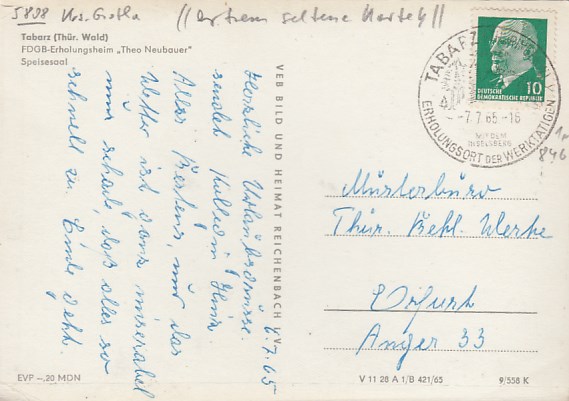 5808 Krs. Gotha
((extrem seltene Karte!))
Tabarz (Thür. Wald)
FDGB-Erholungsheim „Theo Neubauer"
Speisesaal
6.7.65
Herzliche Urlaubsgrüsse
sendet Kollegin
Alles Bestens, nur das
Wetter ist ganz miserabel
nur schade, daß alles so
schnell zu Ende geht.
VEB BILD UND HEIMAT REICHENBACH I. V.
DEUTSCHE
DEMOKRATISCHE REPUBLIK
10
TABARZ
-7.7.65-16
MIT DEM
INSELSBERG
ERHOLUNGSORT DER WERKTÄTIGEN
846
Musterbüro
Thür. Bekl. Werke
Erfurt
Anger 33
EVP –,20 MDN
V 11 28 A 1/B 421/65
9/558 K